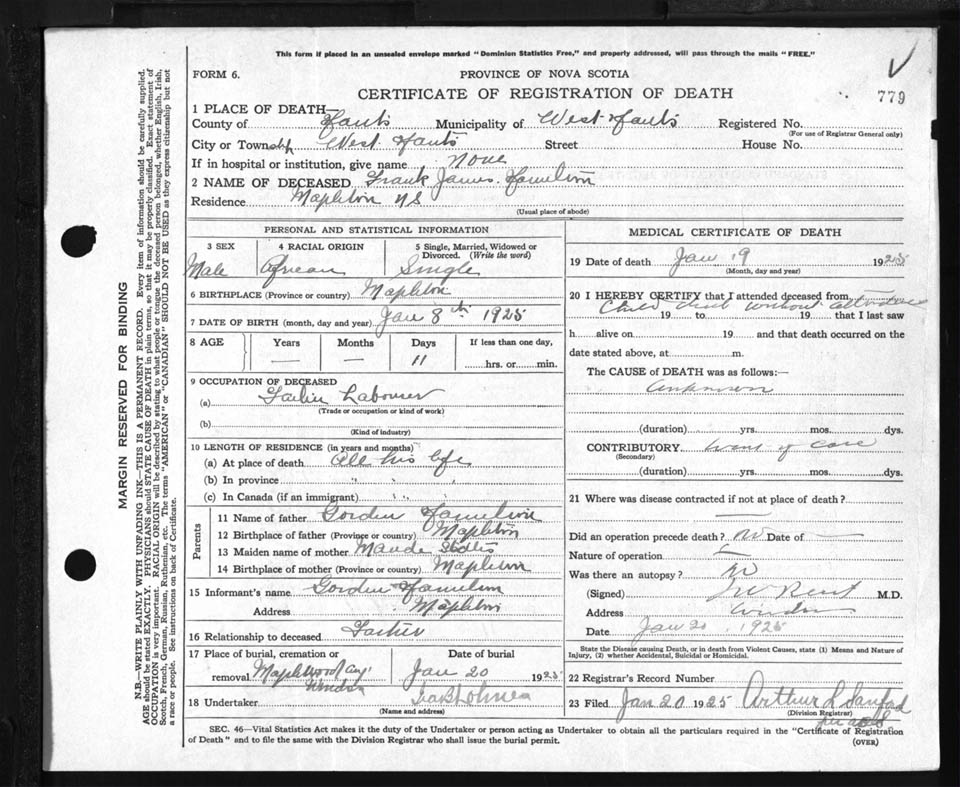 This form if placed in an unsealed envelope marked "Dominion Statistics Free," and properly addressed, will pass through the mails "FREE."
FORM 6.
PROVINCE OF NOVA SCOTIA
CERTIFICATE OF REGISTRATION OF DEATH
779
1 PLACE OF DEATH—
County of Hants Municipality of West Hants Registered No.
(For use of Registrar General only)
City or Township West Hants Street House No.
If in hospital or institution, give name None
2 NAME OF DECEASED Frank James Hamilton
Residence Mapleton NS
(Usual place of abode)
PERSONAL AND STATISTICAL INFORMATION
3 SEX
Male
4 RACIAL ORIGIN
African
5 Single, Married, Widowed or Divorced. (Write the word)
Single
6 BIRTHPLACE (Province or country) Mapleton
7 DATE OF BIRTH (month, day and year) Jan 8th 1925
8 AGE Years Months Days If less than one day,
— — 11 hrs. or min.
9 OCCUPATION OF DECEASED
(a) Labourer
(Trade or occupation or kind of work)
(b)
(Kind of industry)
10 LENGTH OF RESIDENCE (in years and months)
(a) At place of death All his life
(b) In province " "
(c) In Canada (if an immigrant) " "
Parents
11 Name of father Gorden Hamilton
12 Birthplace of father (Province or country) Mapleton
13 Maiden name of mother Maude
14 Birthplace of mother (Province or country) Mapleton
15 Informant's name Gorden Hamilton
Address Mapleton
16 Relationship to deceased Father
17 Place of burial, cremation or removal Maplewood Windsor
Date of burial
Jan 20 1925
18 Undertaker
(Name and address)
MEDICAL CERTIFICATE OF DEATH
19 Date of death Jan 19 1925
(Month, day and year)
20 I HEREBY CERTIFY that I attended deceased from
Child died without attendance
19 to 19 that I last saw
h alive on 19 and that death occurred on
date stated above, at m.
The CAUSE of DEATH was as follows:—
Unknown
(duration) yrs. mos. dys.
CONTRIBUTORY Want of care
(Secondary)
(duration) yrs. mos. dys.
21 Where was disease contracted if not at place of death?
—
Did an operation precede death? No Date of —
Nature of operation —
Was there an autopsy? No
(Signed) M.D.
Address Windsor
Date Jan 20 1925
State the Disease causing Death, or in death from Violent Causes, state (1) Means and Nature of Injury, (2) whether Accidental, Suicidal or Homicidal.
22 Registrar's Record Number
23 Filed Jan 20 1925 Arthur S Sanford
(Division Registrar)
SEC. 46—Vital Statistics Act makes it the duty of the Undertaker or person acting as Undertaker to obtain all the particulars required in the "Certificate of Registration
of Death" and to file the same with the Division Registrar who shall issue the burial permit.
(OVER)
MARGIN RESERVED FOR BINDING
N.B.—WRITE PLAINLY WITH UNFADING INK—THIS IS A PERMANENT RECORD. Every item of information should be carefully supplied.
AGE should be stated EXACTLY. PHYSICIANS should STATE CAUSE OF DEATH in plain terms, so that it may be properly classified. Exact statement of
OCCUPATION is very important. RACIAL ORIGIN will be described by stating to what people or tongue the deceased person belonged, whether English, Irish,
Scotch, French, German, Russian, Ruthenian, etc. The terms "AMERICAN" or "CANADIAN" SHOULD NOT BE USED as they express citizenship but not
a race or people. See instructions on back of Certificate.